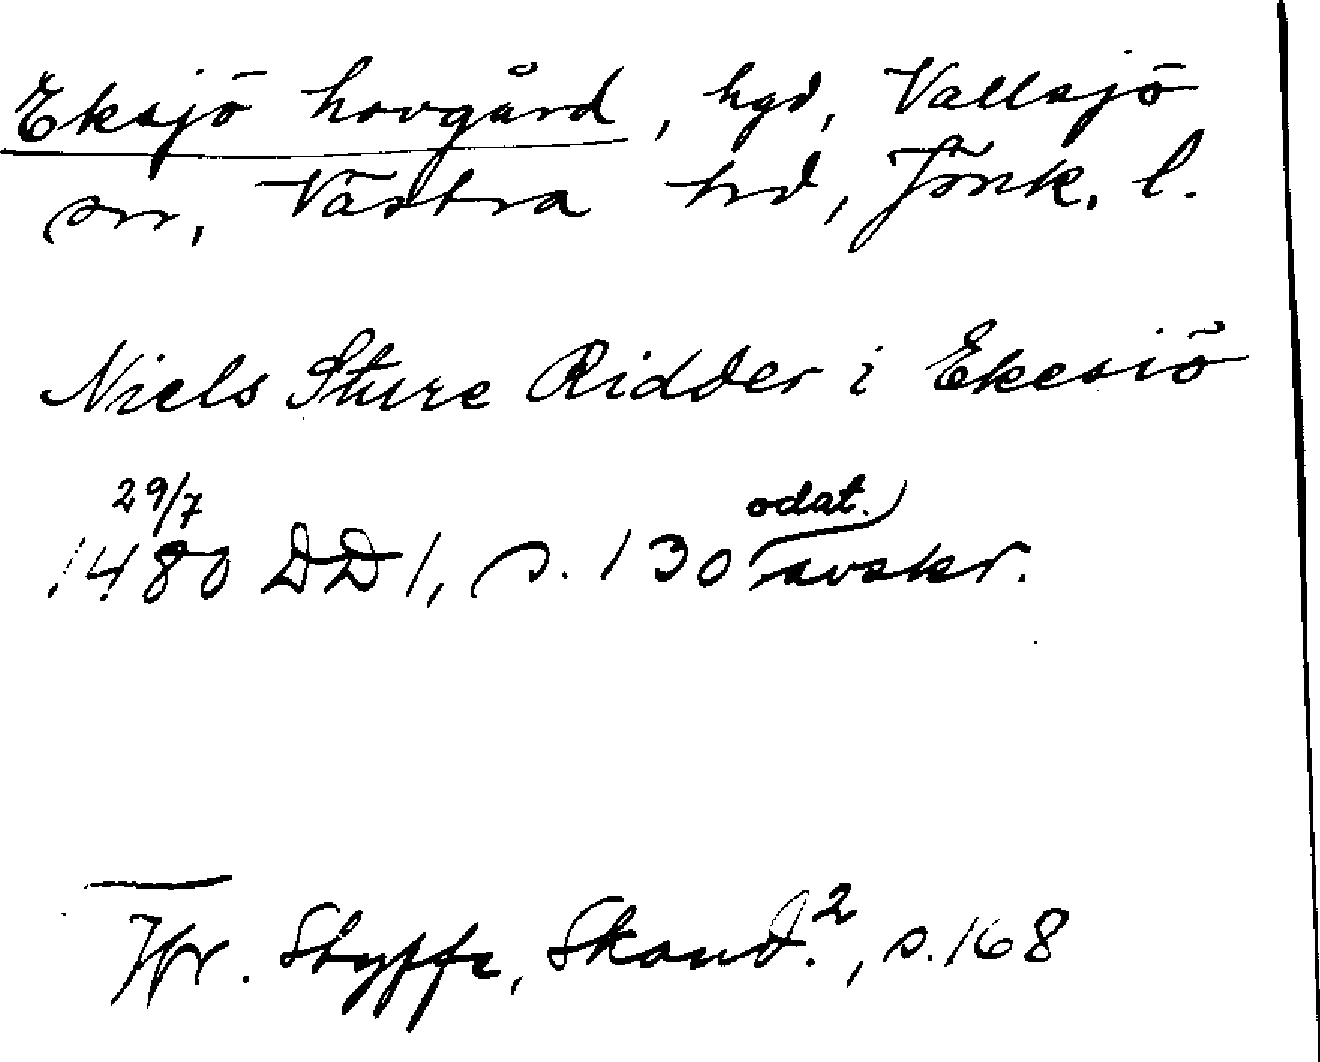 Eksjö hovgård, hgd, Vallsjö
sn, Västra hd, Jönk. l.
Niels Sture Ridder i Ekesiö
29/7
1480 DD 1, s. 130 odat. avskr.
Jfr. Styffe, Skand.², s. 168